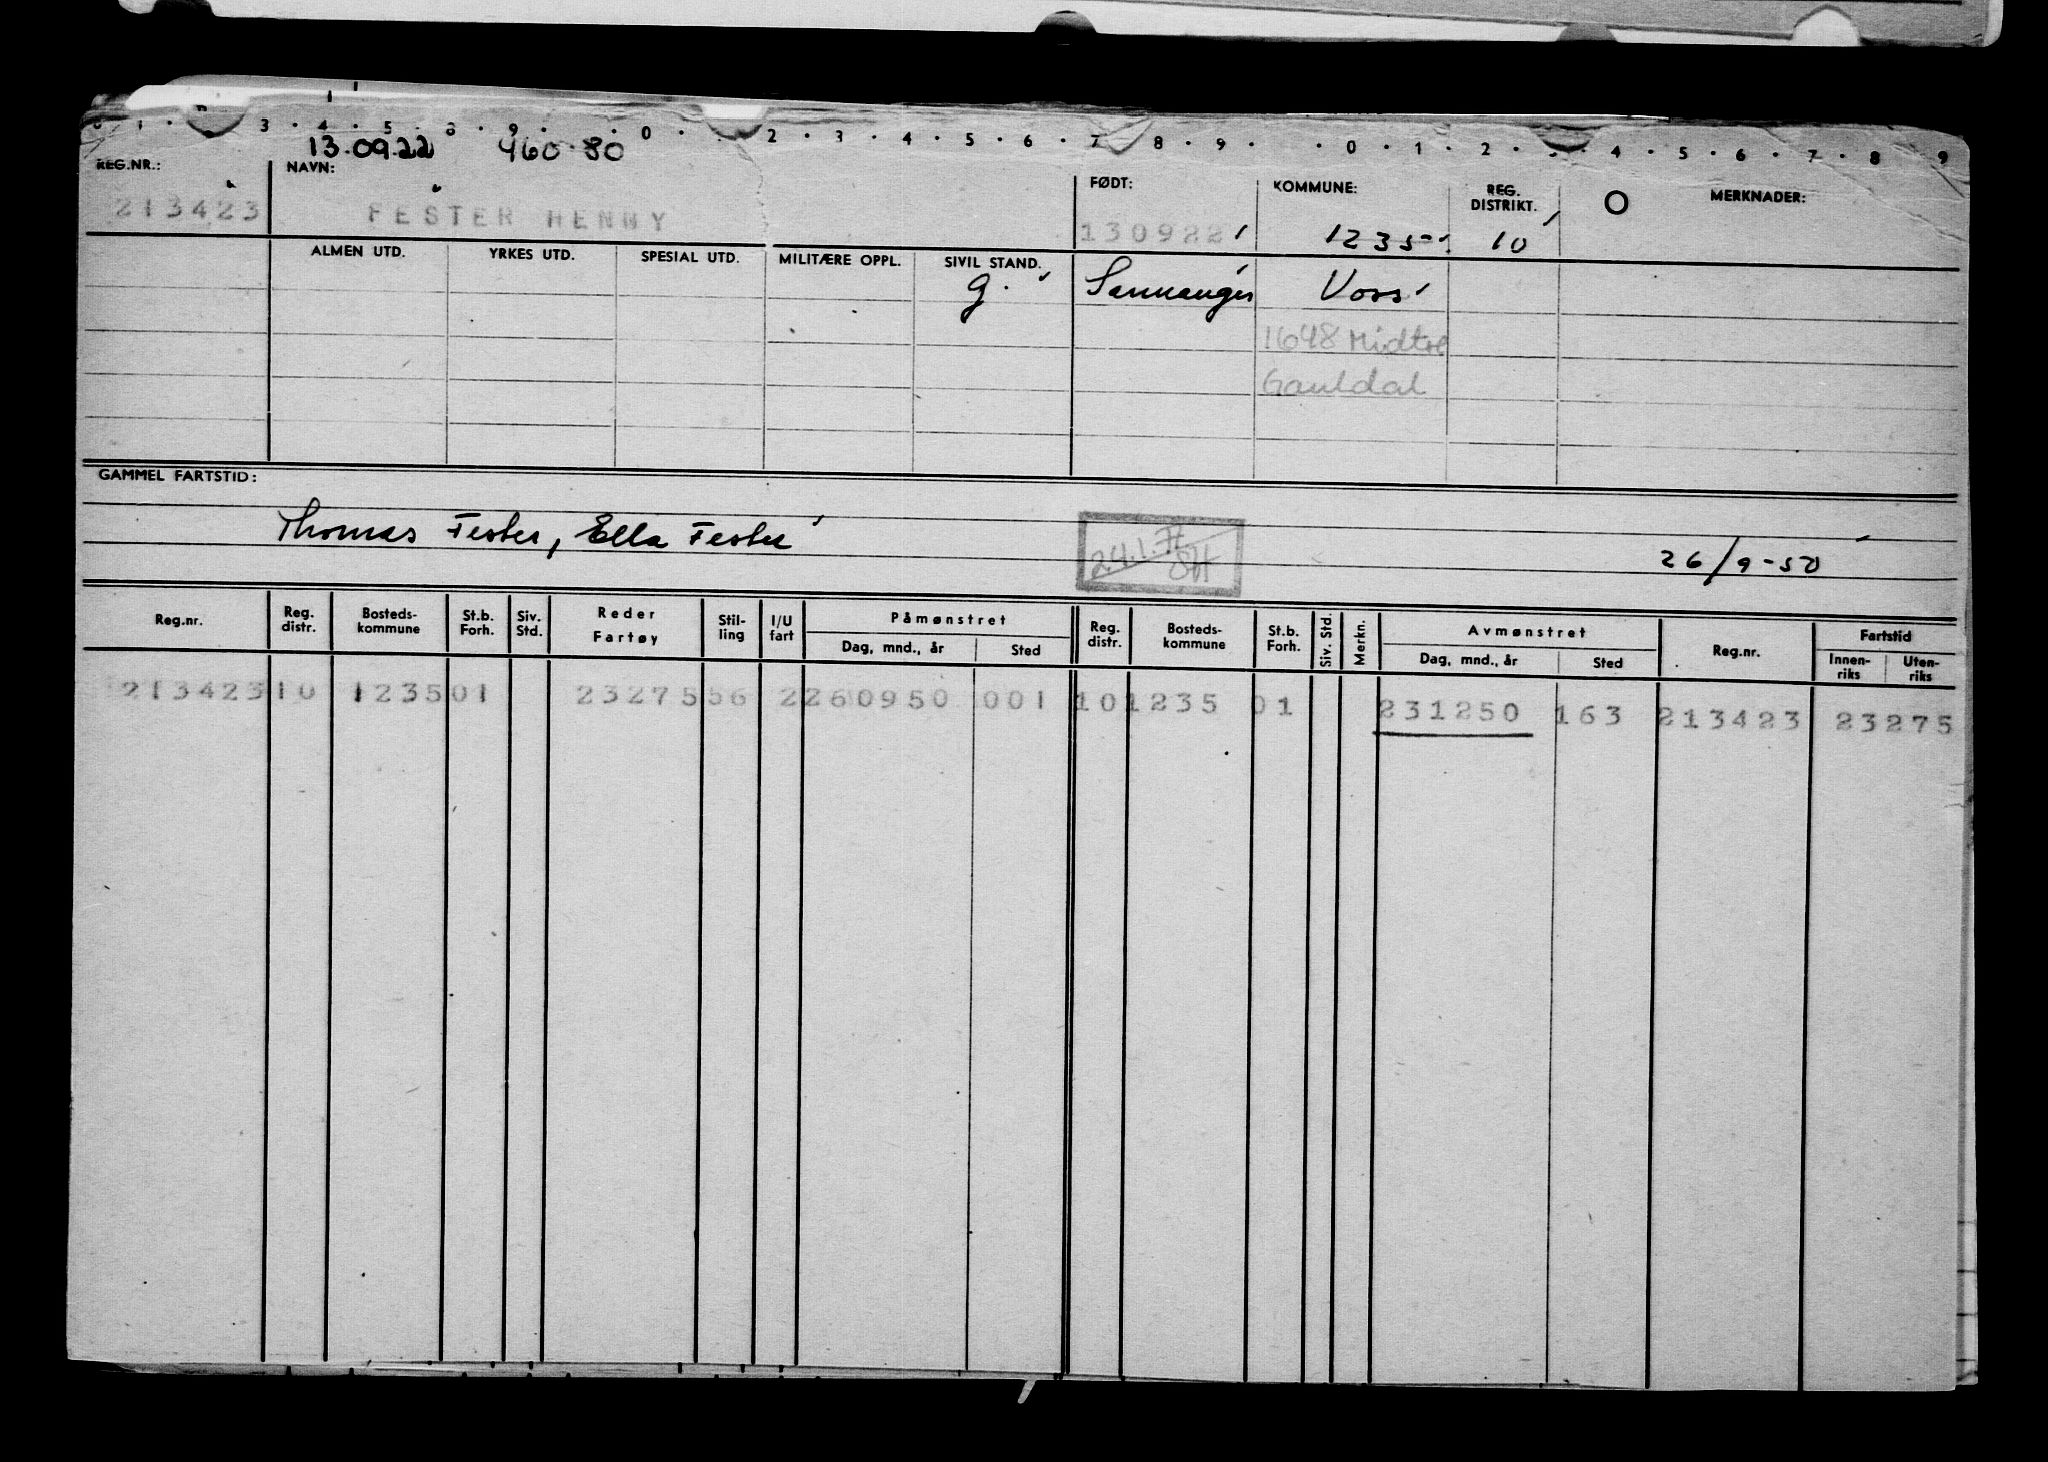 3 . 4 . 5 . 8 . 9 . 0 . 2 . 3 . 4 . 5 . 6 . 7 . 8 . 9 . . 0 . 1 . 2 . . 4 . 5 . 6 . 7 . 8 . 9
13.09.22 460.80
REG.NR.: NAVN: FØDT: KOMMUNE: REG. DISTRIKT. O MERKNADER:
213423 FESTER HENNY 130922 1235 10
ALMEN UTD. YRKES UTD. SPESIAL UTD. MILITÆRE OPPL. SIVIL STAND.
g. Samnanger Voss
1648 Midtre
Gauldal
GAMMEL FARTSTID:
Thomas Fester, Ella Fester
24.1.
SH
26/9-50
Reg.nr. Reg. distr. Bosteds- kommune St.b. Forh. Siv. Std. Reder Fartøy Stil- ling I/U fart Påmønstret Reg. distr. Bosteds- kommune St.b. Forh. Siv. Std. Merkn. Avmønstret Reg.nr. Fartstid
Dag, mnd., år Sted Dag, mnd., år Sted Innen- riks Uten- riks
213423 10 1235 01 23275 56 2 260950 001 10 1235 01 231250 163 213423 23275